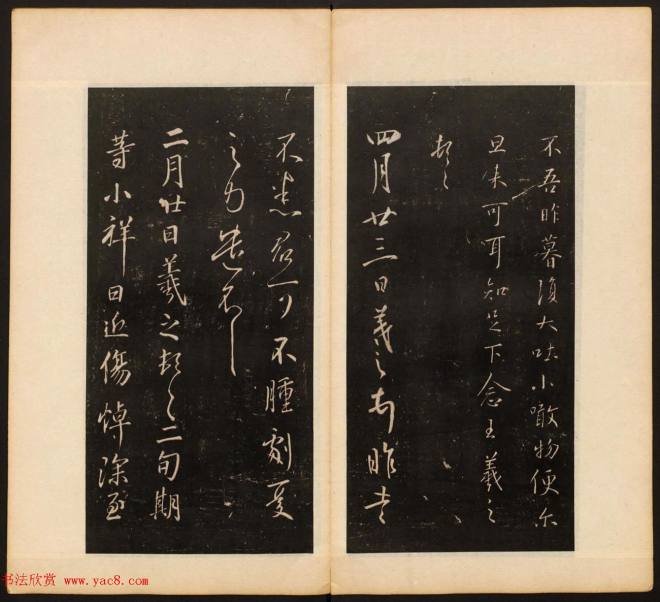 不吾昨暮復大吐小噉物便尔
旦来可耳知足下念王羲之
頓首
四月廿三日羲之頓首昨書
不悉君可不腫劇憂
之力遣不一一
二月廿日羲之頓首二旬期
等小祥日近傷悼深至
书法欣赏 www.yac8.com